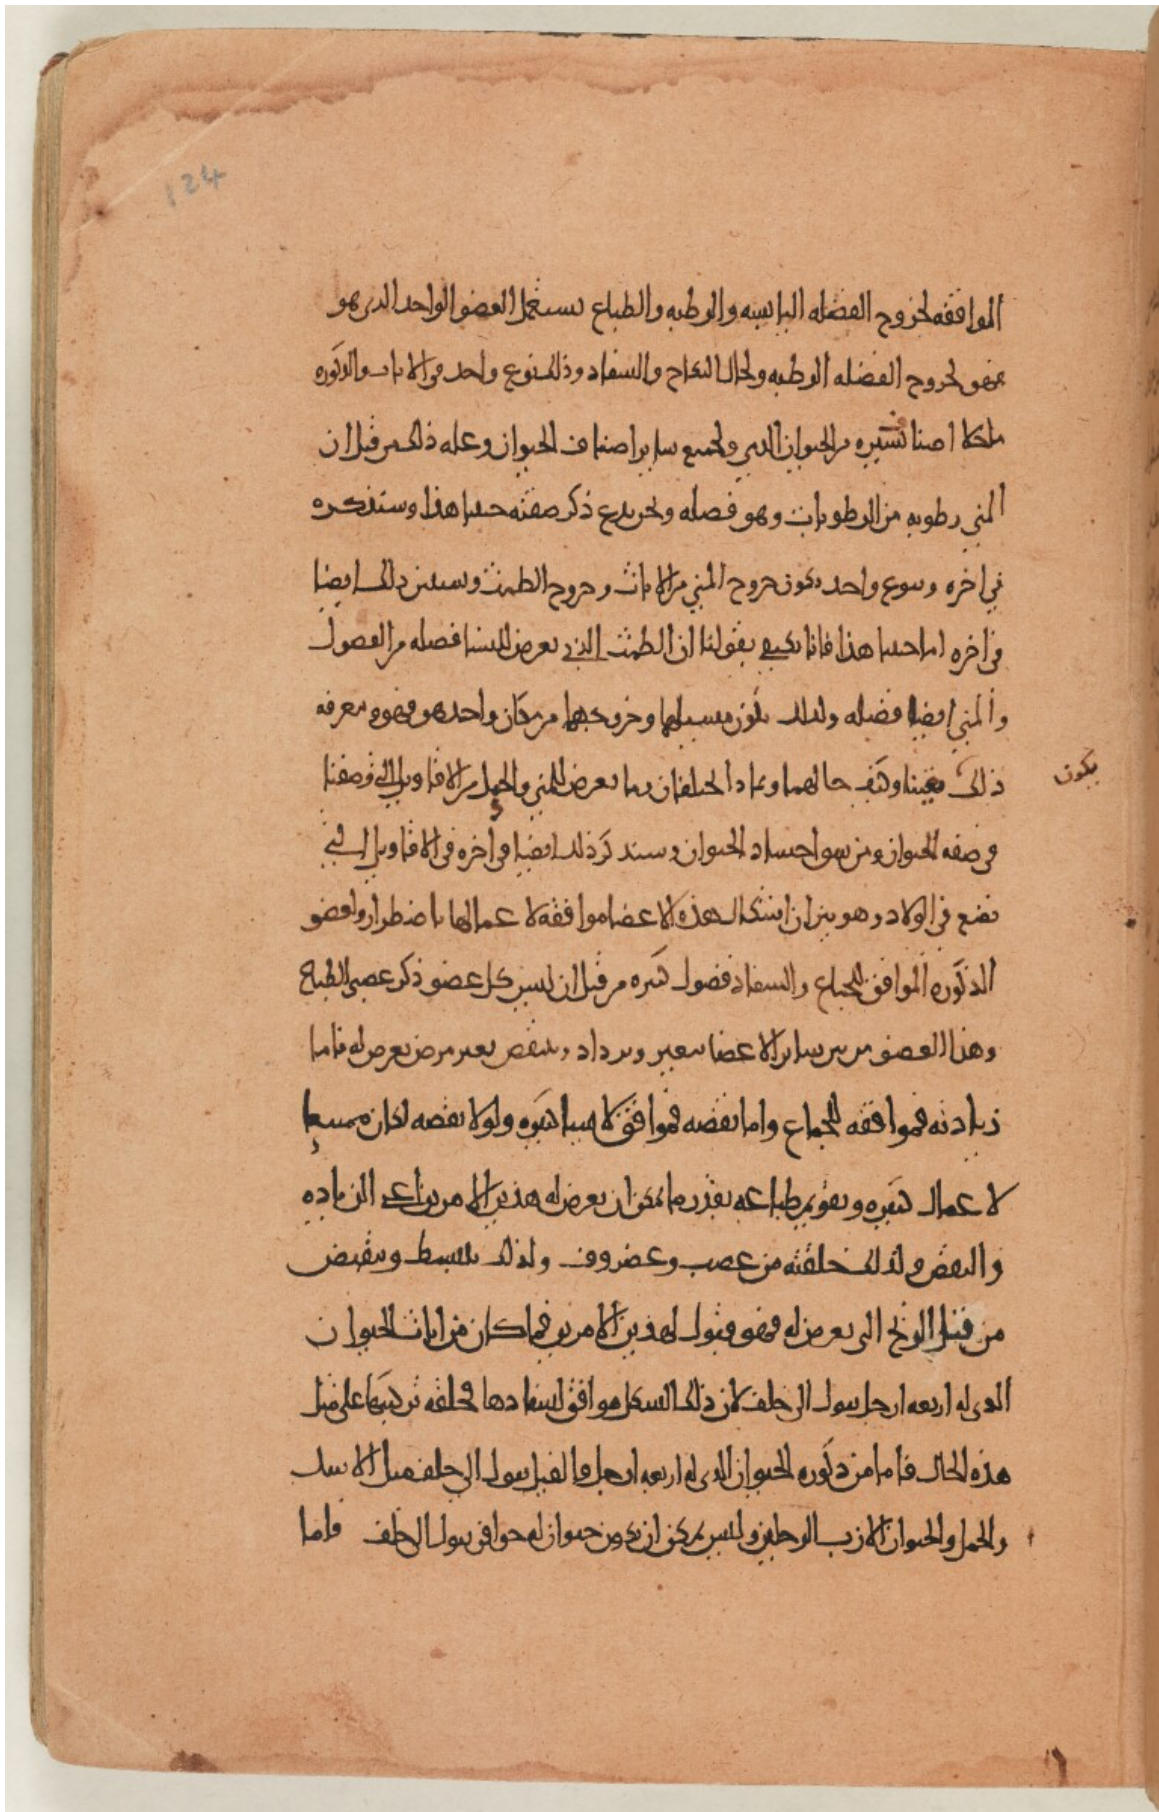 124
الموافقه لخروج الفضله اليابسه والرطبه والطباع يستعمل العضو الواحد الذى هو
فهو لخروج الفضله الرطبه ولحال النكاح والسفاد وذلك بنوع واحد فى الاناث والذكوره
ما خلا اصنافا يسيره من الحيوان الدمى ولجميع ساير اصناف الحيوان وعله ذلك من قبل ان
المنى رطوبه من الرطوبات وهو فضله ونحن ندع ذكر صفته حيننا هذا وسنذكره
فى اخره وبنوع واحد يكون خروج المنى من الاناث وخروج الطمث وسنبين ذلك ايضا
فى اخره اما حيننا هذا فانا نكتفى بقولنا ان الطمث الذى يعرض للنسا فضله من الفضول
والمنى ايضا فضله ولذلك يكون مسيلهما وخروجهما من مكان واحد هو فهو ومعرفه
ذلك معنا وكيف حالهما وبماذا يختلفان وما يعرض للمنى والحمل من الاقاويل التى وصفنا
يكون
فى صفه الحيوان ومن سو اجساد الحيوان وسنذكر ذلك ايضا فى اخره فى الاقاويل التى
نضع فى الولاد وهو بين ان اشكال هذه الاعضا موافقه لاعمالها باضطرار ولعضو
الذكوره الموافق للجماع والسفاد فضول كثيره من قبل ان ليس كل عضو ذكر عصبى الطباع
وهذا العضو من بين ساير الاعضا يتغير ويزداد وينقص بغير مرض يعرض له فاما
زيادته فموافقه للجماع واما نقصه فموافق لاشيا كثيره ولولا نقصه لكان ممتنعا
لاعمال كثيره وتقويم طباعه بقدر ما يمكن ان يعرض له هذين الامرين اعنى الزياده
والنقص ولذلك خلقته من عصب وغضروف ولذلك ينبسط وينقبض
من قبل الريح التى تعرض له فهو قبول لهذين الامرين فما كان من اناث الحيوان
الذى له اربعه ارجل يبول الى خلف لان ذلك الشكل موافق لسفادها فخلقه تركيبها على مثل
هذه الحال فاما من ذكوره الحيوان الذى له اربعه ارجل فالقليل يبول الى خلف مثل الاسد
والجمل والحيوان الازب الرجلين وليس يمكن ان يكون حيوان له حوافر يبول الى خلف فاما